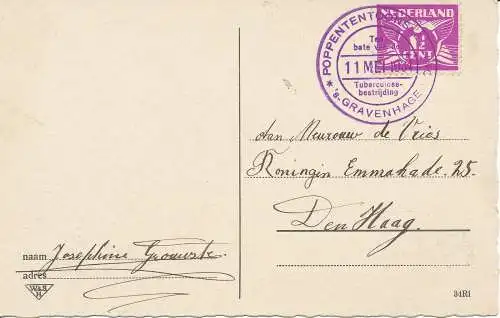 NEDERLAND
½
CENT
POPPENTENTOON
Ten
bate van
11 MEI 1934
Tuberculose-
bestrijding
's-GRAVENHAGE
Aan Mevrouw de Vries
Koningin Emmakade 25.
Den Haag.
naam Josephine
adres
W&S
H
34R1